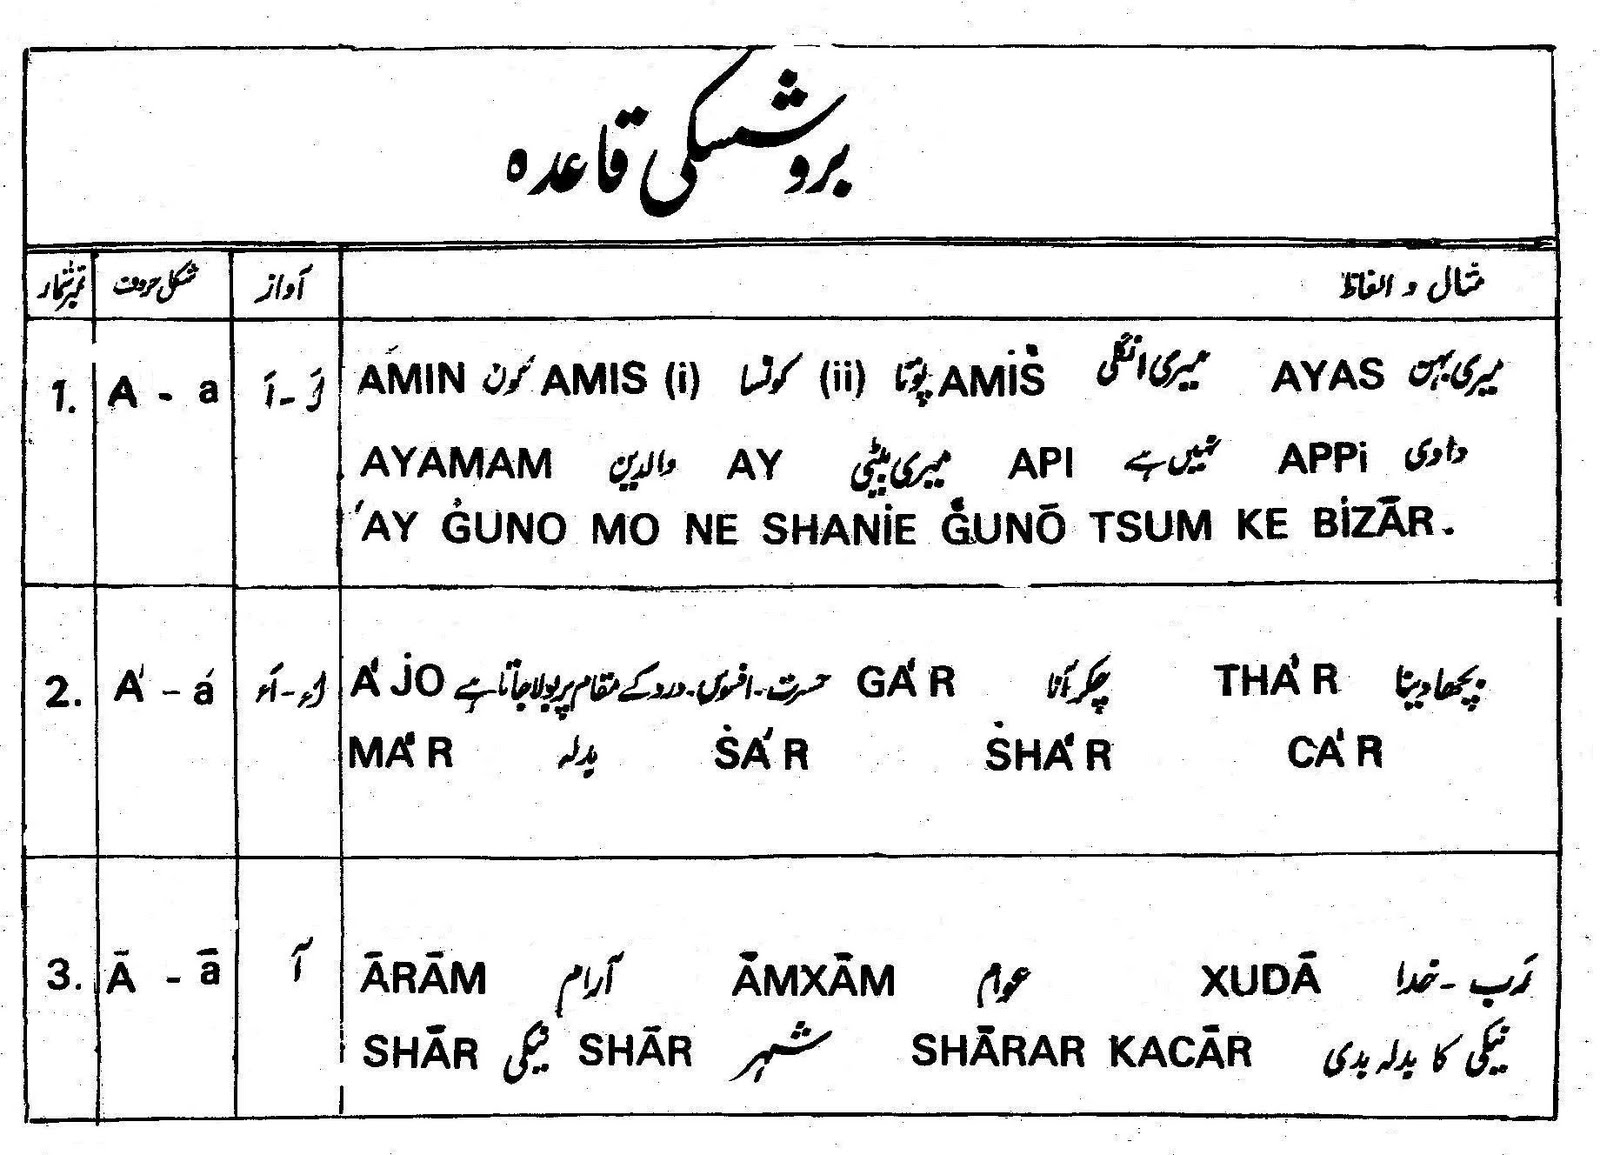 بروشسکی قاعدہ
نمبر شمار شکل حروف آواز مثال و الفاظ
1. A - a اَ - اَ ÁMIN کون AMIS (i) کونسا (ii) پوتا AMİŠ میری انگلی AYAS میری بہن
AYAMAM والدین AY میری بیٹی API نہیں ہے APPi دادی
'AY ĠUNO MO NE SHANİE ĞUNŌ TSUM KE BİZĀR.
2. Á - á اَء - اَء Á JO حسرت - افسوس - درد کے مقام پر بولا جاتا ہے GÁR چکر آنا THÁR بچھا دینا
MÁR بدلہ ṠÁR ṠHÁR CÁR
3. Ā - ā آ ĀRĀM آرام ĀMXĀM عوام XUDĀ رَب - خدا
SHĀR نیکی SHĀR شہر SHĀRAR KACĀR نیکی کا بدلہ بدی